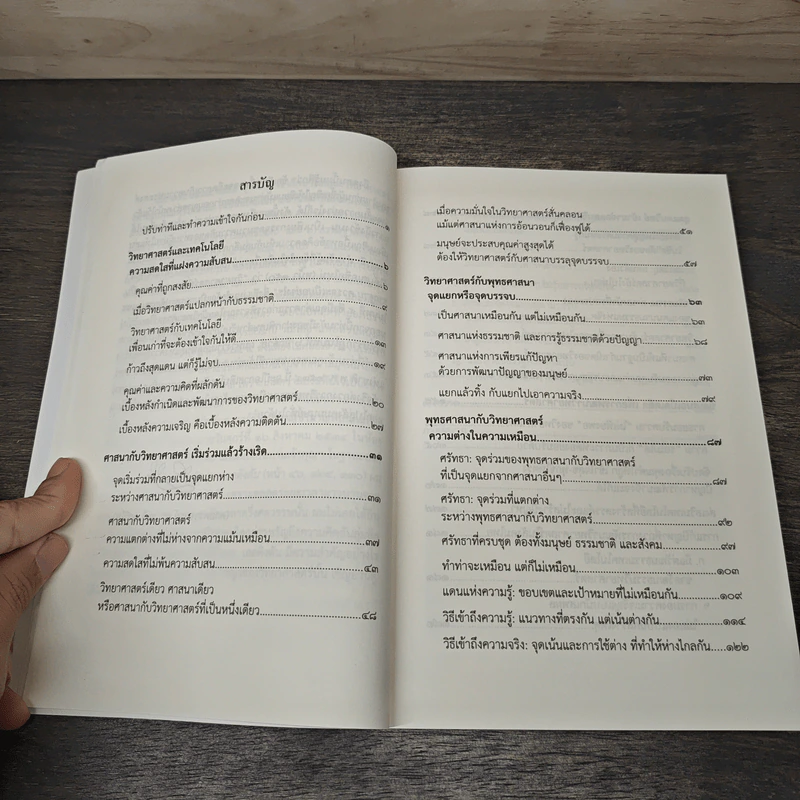 สารบัญ
ปรับท่าทีและทำความเข้าใจกันก่อน..........๑
วิทยาศาสตร์และเทคโนโลยี
ความสดใสที่แฝงความสับสน..........๖
คุณค่าที่ถูกสงสัย..........๖
เมื่อวิทยาศาสตร์แปลกหน้ากับธรรมชาติ..........๙
วิทยาศาสตร์กับเทคโนโลยี
เพื่อนเก่าที่จะต้องเข้าใจกันให้ดี..........๑๓
ก้าวถึงสุดแดน แต่ก็รู้ไม่จบ..........๑๙
คุณค่าและความคิดที่ผลักดัน
เบื้องหลังกำเนิดและพัฒนาการของวิทยาศาสตร์..........๒๐
เบื้องหลังความเจริญ คือเบื้องหลังความติดตัน..........๒๗
ศาสนากับวิทยาศาสตร์ เริ่มร่วมแล้วร้างเริด..........๓๑
จุดเริ่มร่วมที่กลายเป็นจุดแยกห่าง
ระหว่างศาสนากับวิทยาศาสตร์..........๓๑
ศาสนากับวิทยาศาสตร์
ความแตกต่างที่ไม่ห่างจากความแม้นเหมือน..........๓๗
ความสดใสที่ไม่พ้นความสับสน..........๔๓
วิทยาศาสตร์เดียว ศาสนาเดียว
หรือศาสนากับวิทยาศาสตร์ที่เป็นหนึ่งเดียว..........๔๘
เมื่อความมั่นใจในวิทยาศาสตร์สั่นคลอน
แม้แต่ศาสนาแห่งการอ้อนวอนก็เฟื่องฟูได้..........๕๑
มนุษย์จะประสบคุณค่าสูงสุดได้
ต้องให้วิทยาศาสตร์กับศาสนาบรรลุจุดบรรจบ..........๕๗
วิทยาศาสตร์กับพุทธศาสนา
จุดแยกหรือจุดบรรจบ..........๖๓
เป็นศาสนาเหมือนกัน แต่ไม่เหมือนกัน..........๖๓
ศาสนาแห่งธรรมชาติ และการรู้ธรรมชาติด้วยปัญญา..........๖๘
ศาสนาแห่งการเพียรแก้ปัญหา
ด้วยการพัฒนาปัญญาของมนุษย์..........๗๓
แยกแล้วทิ้ง กับแยกไปเอาความจริง..........๗๙
พุทธศาสนากับวิทยาศาสตร์
ความต่างในความเหมือน..........๘๗
ศรัทธา: จุดร่วมของพุทธศาสนากับวิทยาศาสตร์
ที่เป็นจุดแยกจากศาสนาอื่นๆ..........๘๗
ศรัทธา: จุดร่วมที่แตกต่าง
ระหว่างพุทธศาสนากับวิทยาศาสตร์..........๙๒
ศรัทธาที่ครบชุด ต้องทั้งมนุษย์ ธรรมชาติ และสังคม..........๙๗
ทำท่าจะเหมือน แต่ก็ไม่เหมือน..........๑๐๓
แดนแห่งความรู้: ขอบเขตและเป้าหมายที่ไม่เหมือนกัน..........๑๐๙
วิธีเข้าถึงความรู้: แนวทางที่ตรงกัน แต่เน้นต่างกัน..........๑๑๔
วิธีเข้าถึงความจริง: จุดเน้นและการใช้ต่าง ที่ทำให้ห่างไกลกัน.....๑๒๒